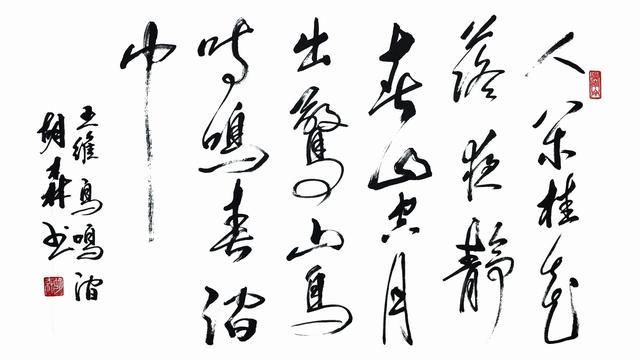 人闲桂花
落夜静
春山空月
出驚山鸟
时鸣春涧
中
王维鸟鸣涧
胡森书